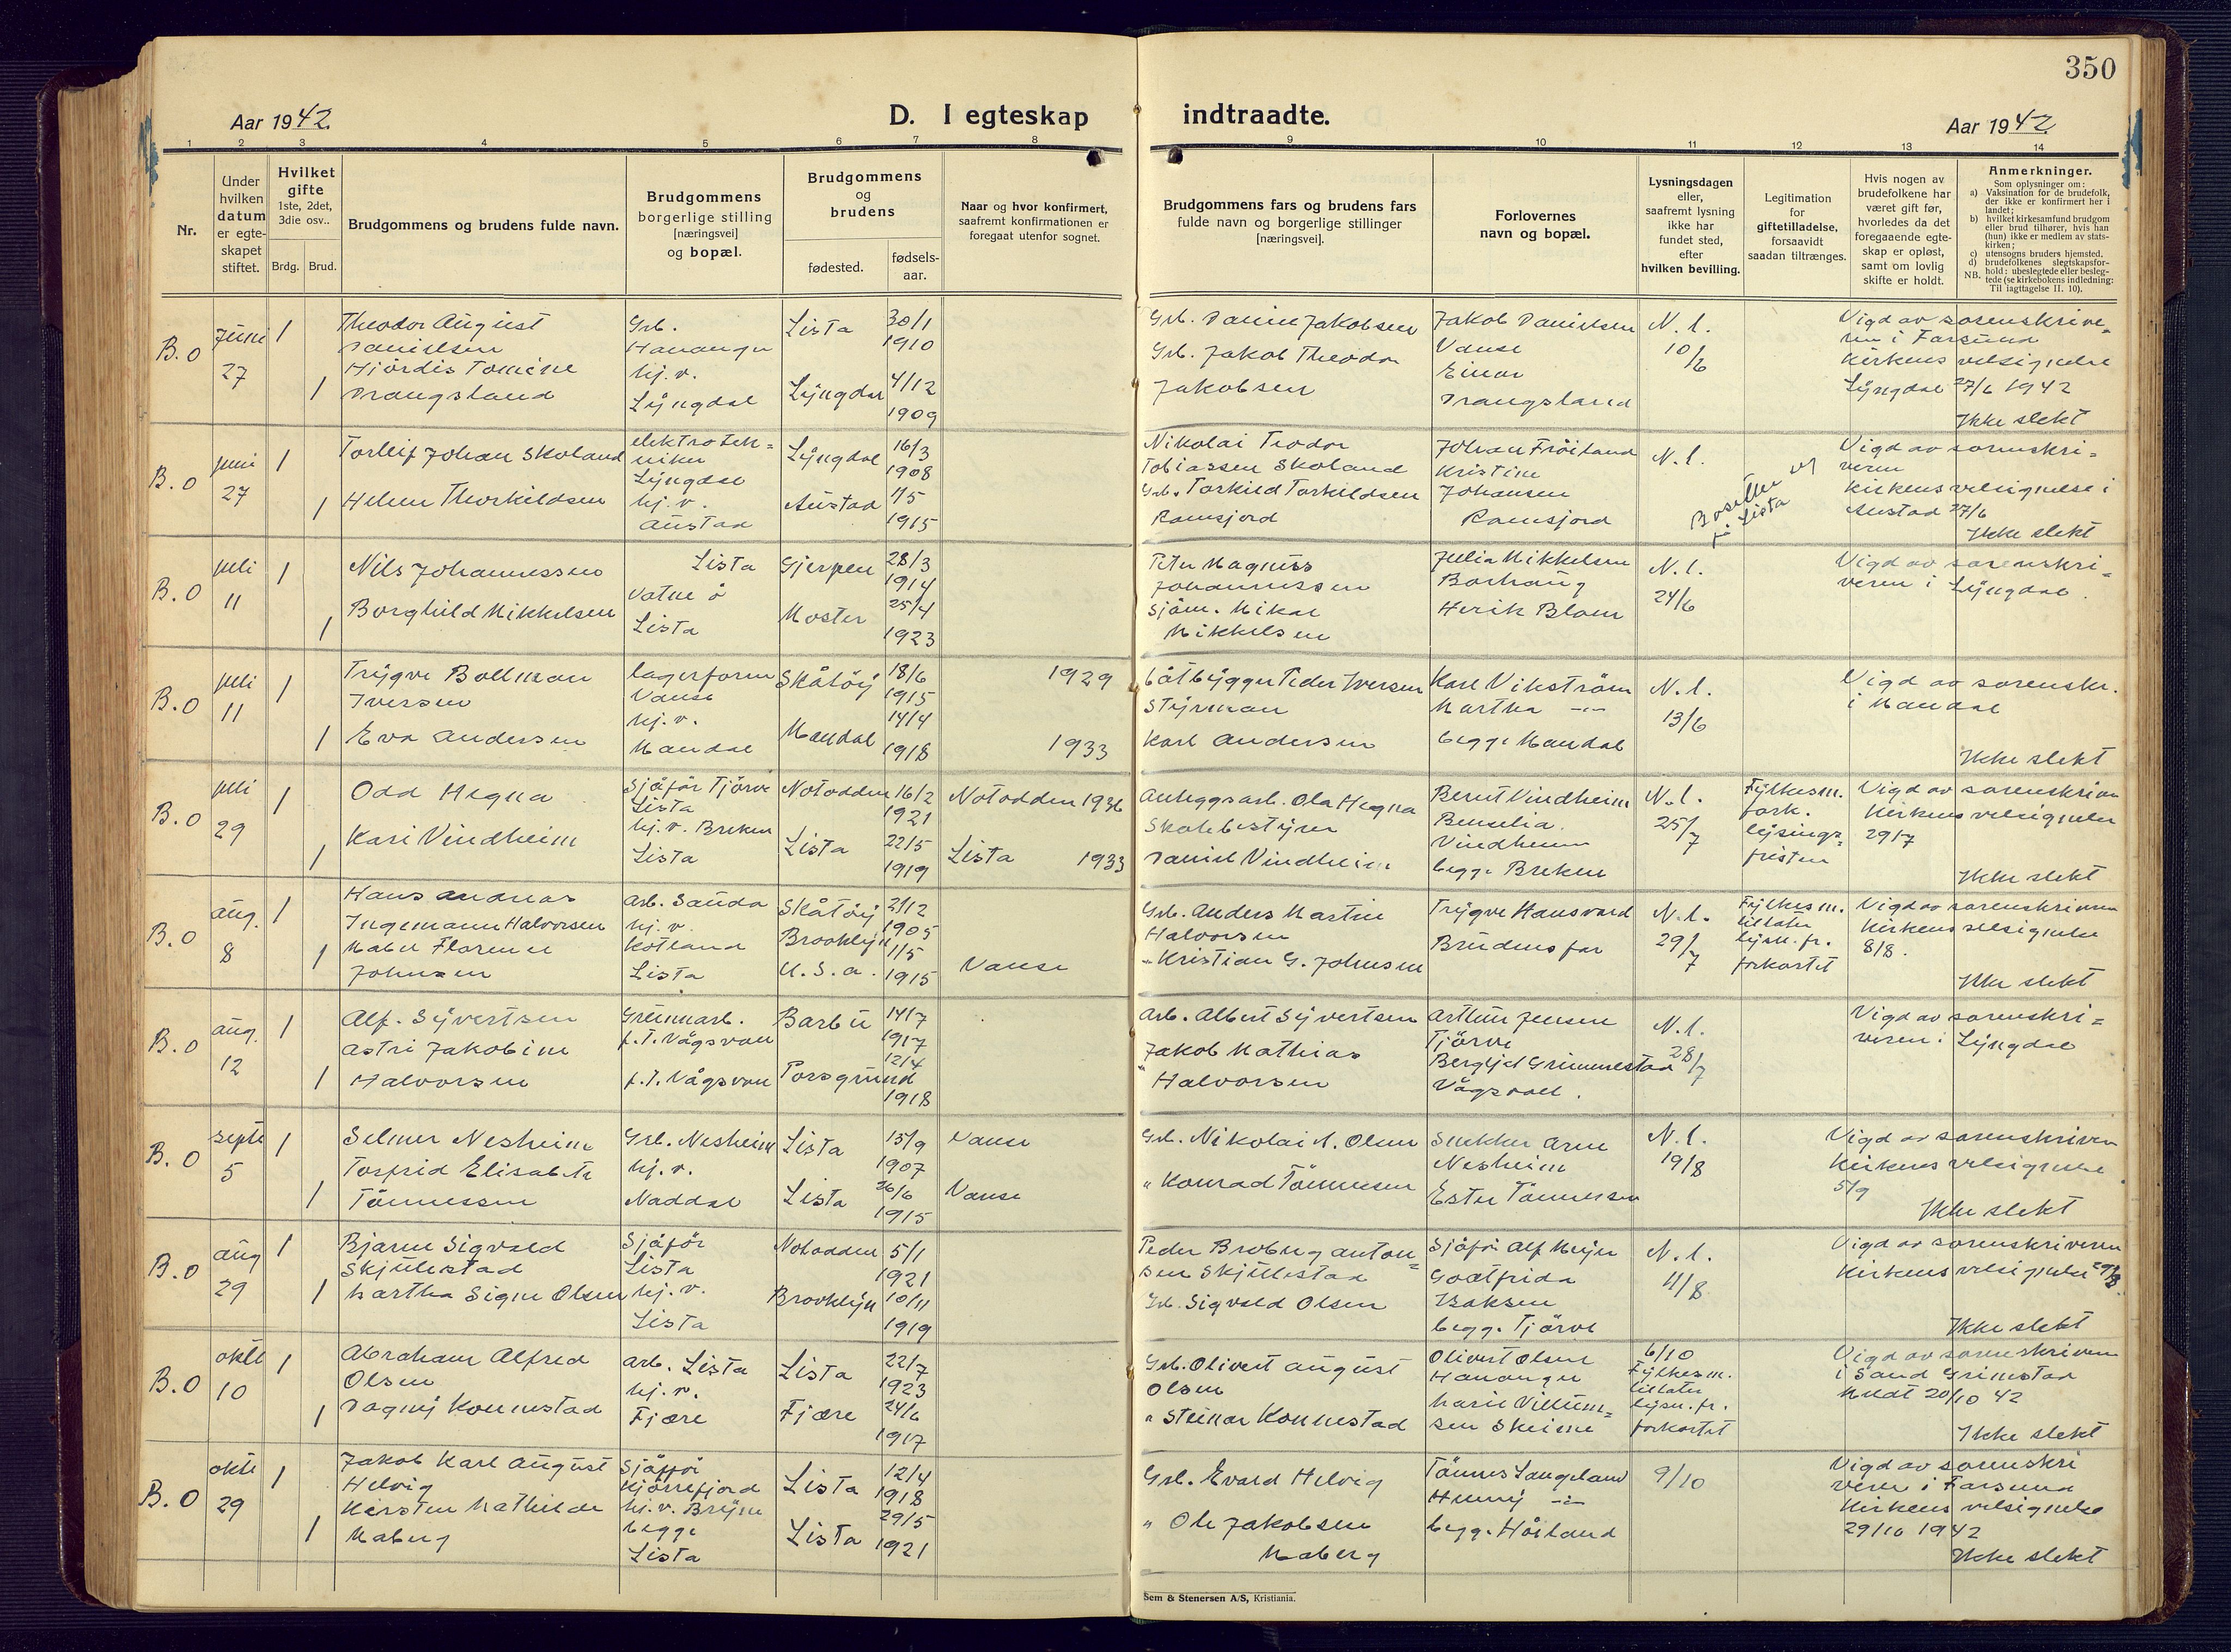 350
Aar 1942.
D. I egteskap indtraadte.
Aar 1942
1 2 3 4 5 6 7 8 9 10 11 12 13 14
Nr.
Under hvilken datum er egte-skapet stiftet.
Hvilket gifte 1ste, 2det, 3die osv..
Brdg. Brud.
Brudgommens og brudens fulde navn.
Brudgommens borgerlige stilling [næringsvei] og bopæl.
Brudgommens og brudens
fødested.
fødsels-aar.
Naar og hvor konfirmert, saafremt konfirmationen er foregaat utenfor sognet.
Brudgommens fars og brudens fars fulde navn og borgerlige stillinger [næringsvei].
Forlovernes navn og bopæl.
Lysningsdagen eller, saafremt lysning ikke har fundet sted, efter hvilken bevilling.
Legitimation for giftetilladelse, forsaavidt saadan tiltrænges.
Hvis nogen av brudefolkene har været gift før, hvorledes da det foregaaende egte-skap er opløst, samt om lovlig skifte er holdt.
Anmerkninger.
Som oplysninger om:
a) Vaksination for de brudefolk, der ikke er konfirmert her i landet;
b) hvilket kirkesamfund brudgom eller brud tilhører, hvis han (hun) ikke er medlem av stats-kirken;
c) utensogns bruders hjemsted.
d) brudefolkenes slegtskapsfor-hold: ubeslegtede eller besleg-tede (se kirkebokens indledning: Til iagttagelse II. 10).
NB.
B.O
Juni 27
1
Theodor August Danielsen
Grb. Hananger
Lista
30/1 1910
1
Hjördis Tomine Drangsland
hj.v. Lyngdal
Lyngdal
4/12 1909
Grb. Daniel Jakobsen
Grb. Jakob Theodor Jakobsen
Jakob Danielsen Vanse
Einar Drangsland
N.l. 10/6
Vigd av sorenskrive=
ren i Farsund
Kirkens velsignelse
Lyngdal 27/6 1942
Ikke slekt
B.O
juni 27
1
Torleif Johan Skoland
elektrotek=
niker
Lyngdal
Lyngdal
16/3 1908
1
Helene Thorkildsen
hj.v. Austad
Austad
1/5 1915
Nikolai Teodor
Tobiassen Skoland
Grb. Torkild Torkildsen
Ramsjord
Johan Fröiland
Kristine
Johansen
Ramsjord
N.l.
Bosetter
i Lista
Vigd av sorenskri=
veren
Kirkens velsignelse i
Austad 27/6
Ikke slekt
B.O
juli 11
1
Nils Johannessen
Lista
Gjerpen
28/3 1914
1
Borghild Mikkelsen
Vatne ö
Lista
Moster
25/4 1923
Peter Magnus
Johannessen
Sjöm. Mikal
Mikkelsen
Julia Mikkelsen
Borhaug
Henrik Blom
N.l. 24/6
Vigd av sorenskri=
veren i Lyngdal.
B.O
juli 11
1
Trygve Bollman
Iversen
lagerform
Vanse
Skåtöy
18/6 1915
1929
1
Eva Andersen
hj.v. Mandal
Mandal
14/4 1918
1933
båtbygger Peder Iversen
Styrman
Karl Andersen
Karl Vikström
Martha -"-
begge Mandal
N.l. 13/6
Vigd av sorenskr.
i Mandal
Ikke slekt
B.O
juli 29
1
Odd Hegna
Sjåför Tjörve
Lista
Notodden
16/2 1921
Notodden 1936
1
Kari Vindheim
hj.v. Brekne
Lista
Lista
22/5 1919
Lista 1933
Anleggsarb. Ola Hegna
Skolebestyrer
Daniel Vindheim
Bernt Vindheim
Benselia.
Vindheim
begge Brekne
N.l. 25/7
Fylkesm.
fork.
lysings=
fristen
Vigd av sorenskriver
Kirkens velsignelse
29/7
Ikke slekt
B.O
aug. 8
1
Hans Andreas
Ingemann Halvorsen
arb. Sauda
Skåtöy
21/2 1905
1
Mabel Florence
Johnsen
hj.v.
Kotland
Lista
Brooklyn
U.S.A.
1/5 1915
Vanse
Grb. Anders Martin
Halvorsen
" Kristian G. Johnsen
Trygve Hansvard
Brudens far
N.l. 29/7
Fylkesm.
tillater
lysn. fr.
forkortet
Vigd av sorenskriveren
Kirkens velsignelse
8/8.
Ikke slekt
B.O
aug. 12
1
Alf. Syvertsen
Grunnarb.
f.T. Vågsvoll
Barbu
14/7 1917
1
Astri Jakobine
Halvorsen
f.T. Vågsvoll
Porsgrund
12/4 1918
Arb. Albert Syvertsen
Jakob Mathias
" Halvorsen
Arthur Jensen
Tjörve
Bergljot Grimmestad
Vågsvoll.
N.l. 28/7
Vigd av sorenskri=
veren i Lyngdal
B.O
septb 5
1
Selmer Nesheim
Grb. Nesheim
Lista
15/9 1907
Vanse
1
Torfrid Elisabeth
Tönnessen
hj.v.
Naddal
Lista
26/6 1915
Vanse
Grb. Nikolai A. Olsen
" Konrad Tönnessen
Snekker Arne
Nesheim
Ester Tönnessen
N.l. 19/8
Vigd av sorenskriver
Kirkens velsignelse
5/9
Ikke slekt
B.O
aug 29
1
Bjarne Sigvald
Skjulestad
Sjåför
Lista
Notodden
5/1 1921
1
Martha Signe Olsen
hj.v.
Lista
Brooklyn
10/11 1919
Peder Broberg Anton=
sen Skjulestad
Grb. Sigvald Olsen
Sjåför Alf Meyer
Godtfrida
Isaksen
begge Tjörve
N.l. 11/8
Vigd av sorenskriveren
Kirkens velsignelse 29/8.
Ikke slekt
B.O
oktb 10
1
Abraham Alfred
Olsen
arb. Lista
Lista
22/7 1923
1
Dagny Konnestad
hj.v.
Fjære
Fjære
24/6 1917
Grb. Olivert August
Olsen
" Steinar Konnestad
Olivert Olsen
Hananger
Marie Villum=
sen Skeime
6/10
Fylkesm.
tillater
lysn. fr.
forkortet
Vigd av sorenskriveren
i Sand Grimstad
Meldt 20/10 42
Ikke slekt
B.O
oktb 29
1
Jakob Karl August
Helvig
Sjåför
Kjörrefjord
Lista
12/4 1918
1
Kirsten Mathilde
Maberg
hj.v. Bryne
begge
Lista
Lista
29/5 1921
Grb. Evard Helvig
" Ole Jakobsen
Maberg
Tönnes Langeland
Henny -"-
begge Höiland
9/10
Vigd av sorenskri
veren i Farsund
Kirkens velsignelse
29/10 1942
Ikke slekt
Sem & Stenersen A/S, Kristiania.